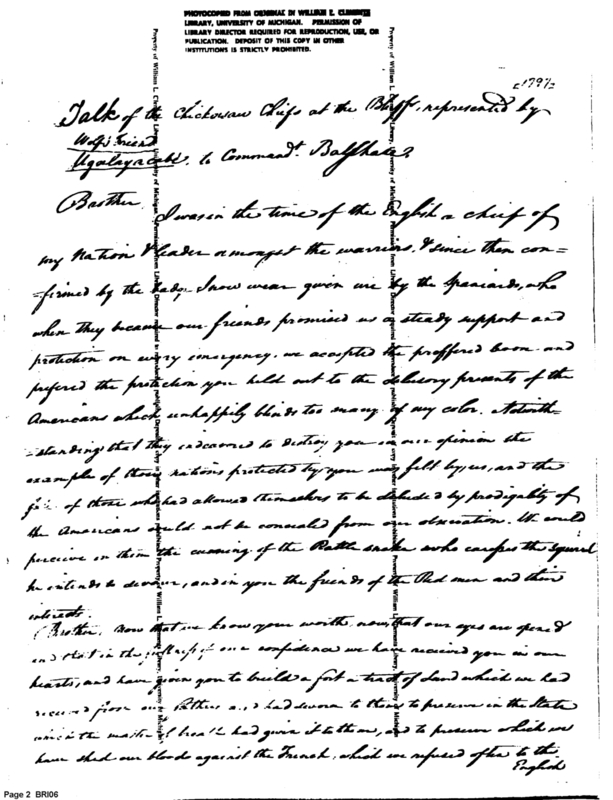 PHOTOCOPIED FROM ORIGINAL IN WILLIAM L. CLEMENTS
LIBRARY, UNIVERSITY OF MICHIGAN. PERMISSION OF
LIBRARY DIRECTOR REQUIRED FOR REPRODUCTION, USE, OR
PUBLICATION. DEPOSIT OF THIS COPY IN OTHER
INSTITUTIONS IS STRICTLY PROHIBITED.
c1797
Talk of the Chickasaw Chiefs at the Bluffs, represented by
Wolf's Friend
Ugalayacabé, to Commandt.
Brother, I was in the time of the English a chief of
my Nation & leader amongst the warriors, & since then con=
=firmed by the badge I now wear given me by the Spaniards, who
when they became our friends promised us a steady support and
protection on every emergency. we accepted the proffered boon and
prefered the protection you held out to the delusory presents of the
Americans which unhappily blinds too many of my color. Notwith=
=standing that they endeavored to destroy you in our opinion the
example of those nations protected by you was felt by us, and the
of those who had allowed themselves to be deluded by prodigality of
the Americans could not be concealed from our observation. We could
perceive in them the cunning of the Rattle snake who caresses the Squirrel
he intends to devour, and in you the friends of the Red men and their
interests.
Brother, Now that we know your worth, now that our eyes are opened
and that in the of our confidence we have received you in our
hearts, and have given you to build a fort a tract of Land which we had
received from our Fathers and had sworn to them to preserve in the State
the master of breath had given it to them, and to preserve which we
have shed our bloods against the French, which we refused often to the
English
Page 2 BRI06